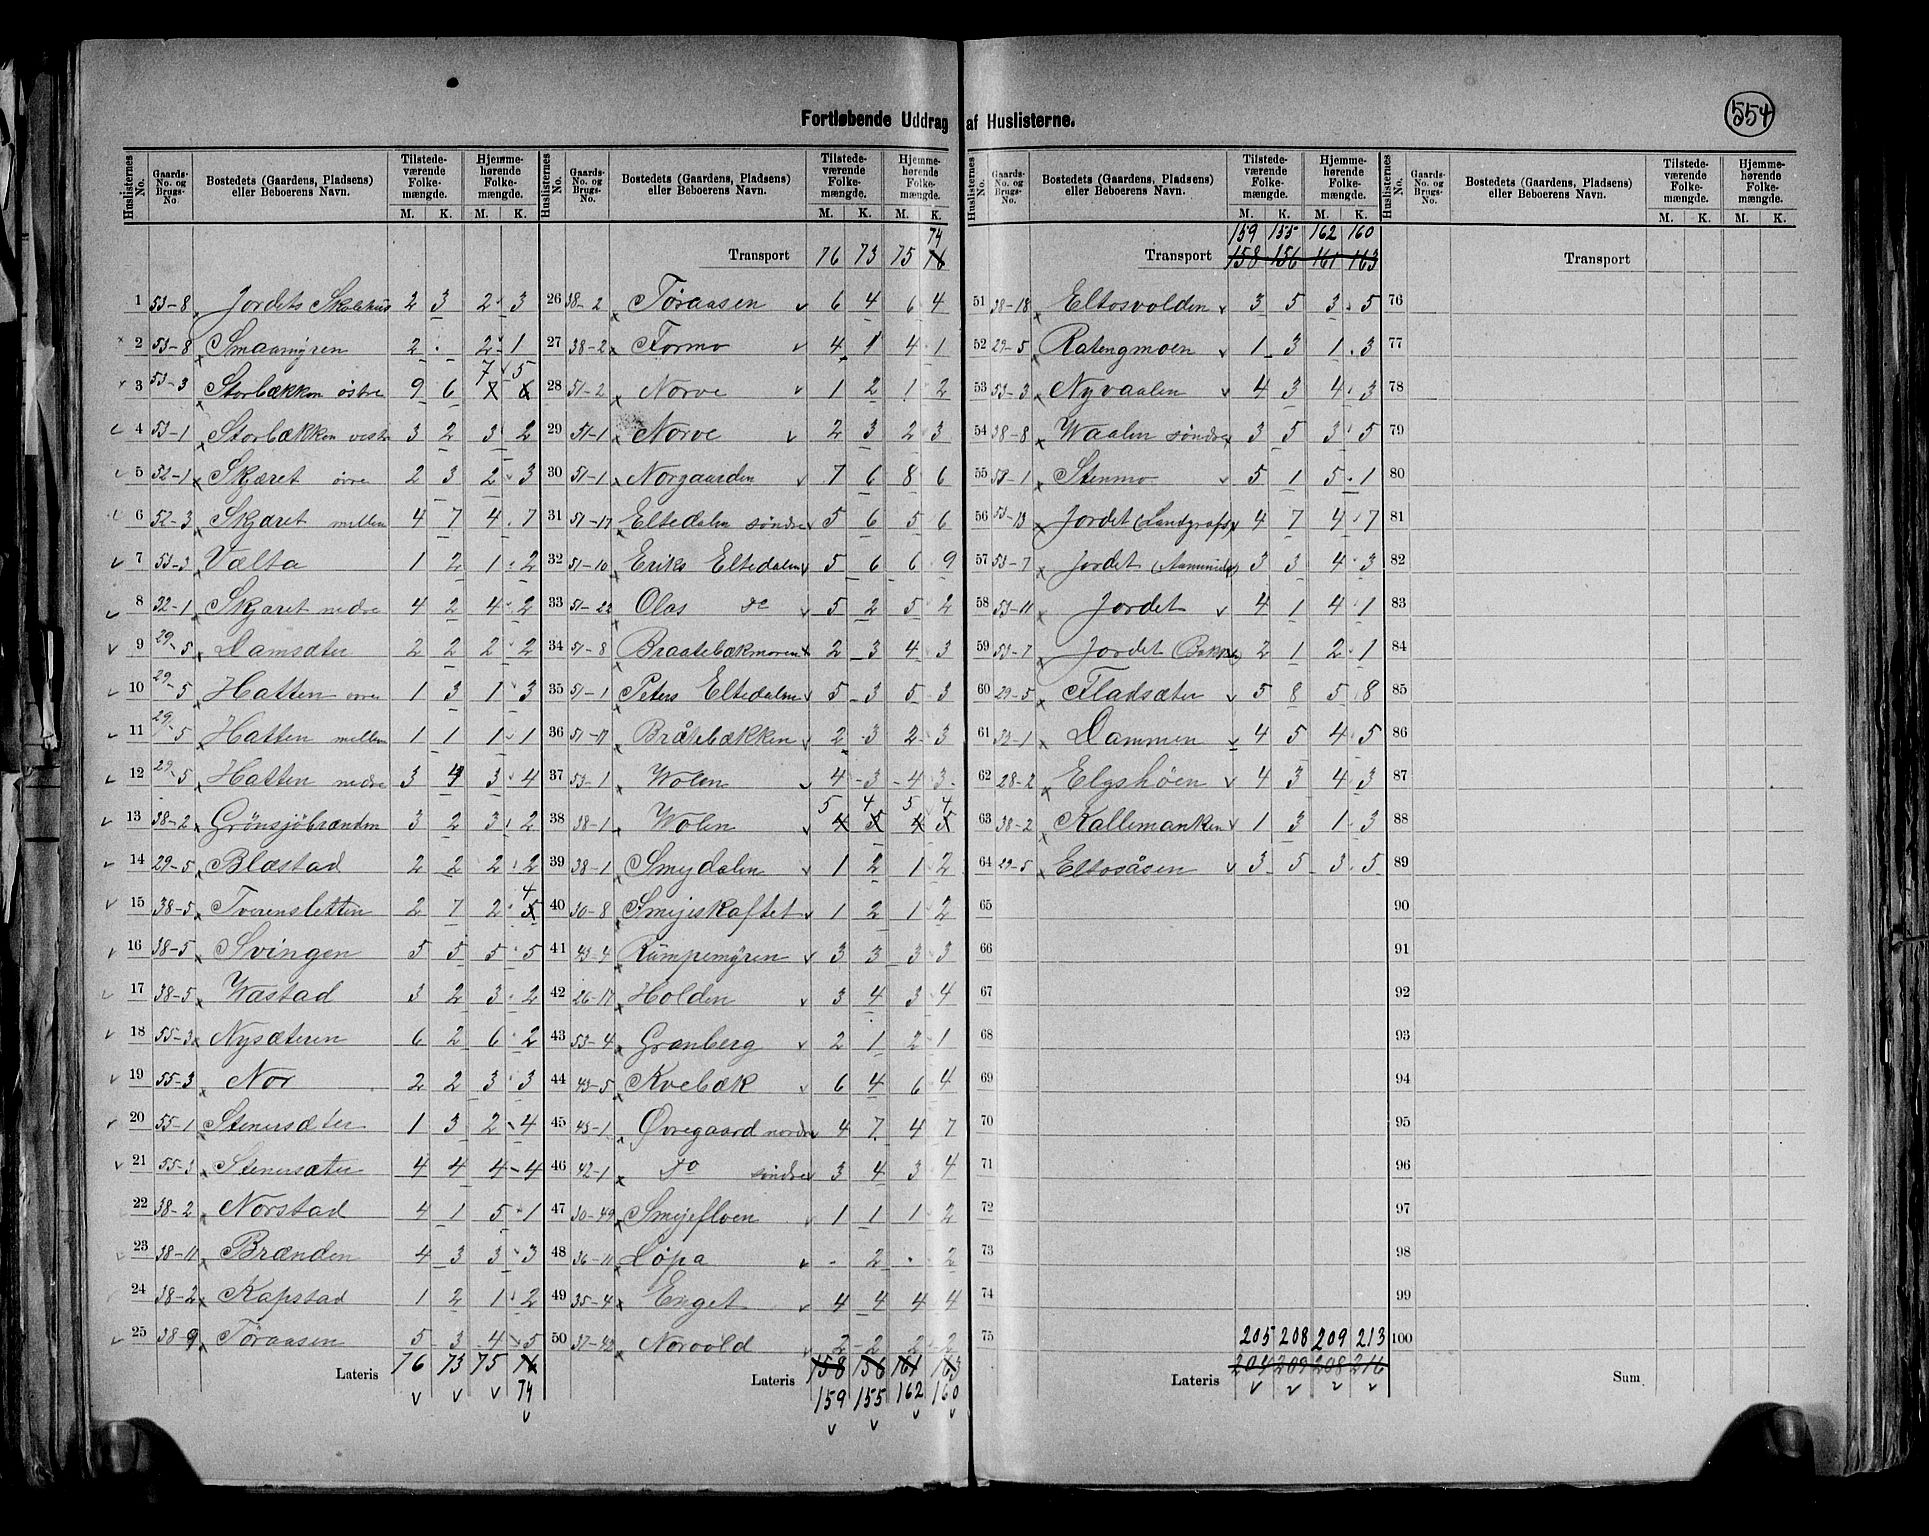 554
Fortløbende Uddrag af Huslisterne.
Huslisternes No. Gaards-No. og Brugs-No. Bostedets (Gaardens, Pladsens) eller Beboerens Navn. Tilstedeværende Folkemængde. M. K. Hjemmehørende Folkemængde. M. K.
1 53-8 Jordets Skolehus 2 3 2 3
2 53-8 Smaamyren 2 . 2 1
3 53-3 Storbækken østre 9 6 7 5
4 53-1 Storbækken vestre 3 2 3 2
5 52-1 Skjæret øvre 2 3 2 3
6 52-3 Skjæret mellem 4 7 4 7
7 53-3 Vælta 1 2 1 2
8 32-1 Skjæret nedre 4 2 4 2
9 29-5 Damsæter 2 2 2 2
10 29-5 Hatten øvre 1 3 1 3
11 29-5 Hatten mellem 1 1 1 1
12 29-5 Hatten nedre 3 4 3 4
13 38-2 Grönsjöbrænden 3 2 3 2
14 29-5 Blæstad 2 2 2 2
15 38-5 Tverensletten 2 7 2 4
16 38-5 Svingen 5 5 5 5
17 38-5 Wæstad 3 2 3 2
18 55-3 Nysæteren 6 2 6 2
19 55-3 Nor 2 2 3 3
20 55-1 Stenersæter 1 3 2 4
21 55-3 Stenersæter 4 4 4 4
22 38-2 Norstad 4 1 5 1
23 38-11 Brænden 4 3 3 3
24 38-2 Kapstad 1 2 1 2
25 38-9 Töraasen 5 3 4 5
Lateris 76 73 75 76
74
Huslisternes No. Gaards-No. og Brugs-No. Bostedets (Gaardens, Pladsens) eller Beboerens Navn. Tilstedeværende Folkemængde. M. K. Hjemmehørende Folkemængde. M. K.
74
Transport 76 73 75 76
26 38-2 Töraasen 6 4 6 4
27 38-2 Formo 4 1 4 1
28 51-2 Norve 1 2 1 2
29 51-1 Norve 2 3 2 3
30 51-1 Norgaarden 7 6 8 6
31 51-17 Eltedalen søndre 5 6 5 6
32 51-10 Eriks Eltedalen 5 6 6 9
33 51-22 Olas do 5 2 5 2
34 51-8 Braatebækmoren 2 3 4 3
35 51-1 Peters Eltedalen 5 3 5 3
36 51-17 Bråtebækken 2 3 2 3
37 53-1 Wolen 4 3 4 3
5 4 5 4
38 38-1 Wolen 4 5 4 5
39 38-1 Smejdalen 1 2 1 2
40 30-8 Smejeskaftet 1 2 1 2
41 43-4 Rumpemyren 3 3 3 3
42 26-17 Holden 3 4 3 4
43 53-4 Granberg 2 1 2 1
44 43-5 Kvebæk 6 4 6 4
45 43-1 Øvregaard nordre 4 7 4 7
46 42-1 do søndre 3 4 3 4
47 30-49 Smejefloen 1 1 1 2
48 36-11 Løpa . 2 . 2
49 35-4 Enget 4 4 4 4
50 37-42 Norvold 2 2 2 2
Lateris 158 156 161 163
159 155 162 160
Huslisternes No. Gaards-No. og Brugs-No. Bostedets (Gaardens, Pladsens) eller Beboerens Navn. Tilstedeværende Folkemængde. M. K. Hjemmehørende Folkemængde. M. K.
159 155 162 160
Transport 158 156 161 163
51 38-18 Eltosvolden 3 5 3 5
52 29-5 Ratengmoen 1 3 1 3
53 53-3 Nyvaalen 4 3 4 3
54 38-8 Waalen søndre 3 5 3 5
55 53-1 Stenmo 5 1 5 1
56 53-13 Jordet (Landgrafs) 4 7 4 7
57 53-7 Jordet 3 3 4 3
58 53-11 Jordet 4 1 4 1
59 53-7 Jordet (Bakken) 2 1 2 1
60 29-5 Fladsæter 5 8 5 8
61 52-1 Dammen 4 5 4 5
62 28-2 Elgshöen 4 3 4 3
63 38-2 Kallemanken 1 3 1 3
64 29-5 Eltosåsen 3 5 3 5
65
66
67
68
69
70
71
72
73
74
75 205 208 209 213
Lateris 204 209 208 216
Huslisternes No. Gaards-No. og Brugs-No. Bostedets (Gaardens, Pladsens) eller Beboerens Navn. Tilstedeværende Folkemængde. M. K. Hjemmehørende Folkemængde. M. K.
Transport
76
77
78
79
80
81
82
83
84
85
86
87
88
89
90
91
92
93
94
95
96
97
98
99
100
Sum